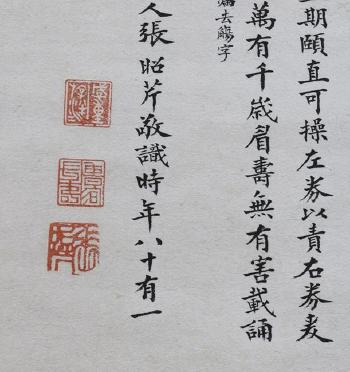 期頤直可操左券以責右券爰
萬有千歲眉壽無有害載誦
去觴字
人張昭芹敬識時年八十有一